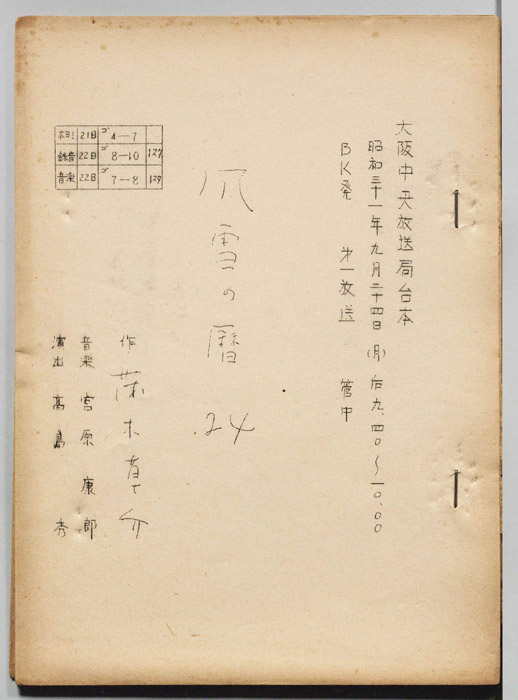 大阪中央放送局台本
昭和三十一年九月二十四日(月)后九.四〇〜一〇.〇〇
BK発 第一放送 管中
風雪の暦
24
作 茂木草介
音楽 宮原康郎
演出 高島秀
ホヨミ 21日 ゴ4—7
録音 22日 ゴ8—10 127
音楽 22日 ゴ7—8 129